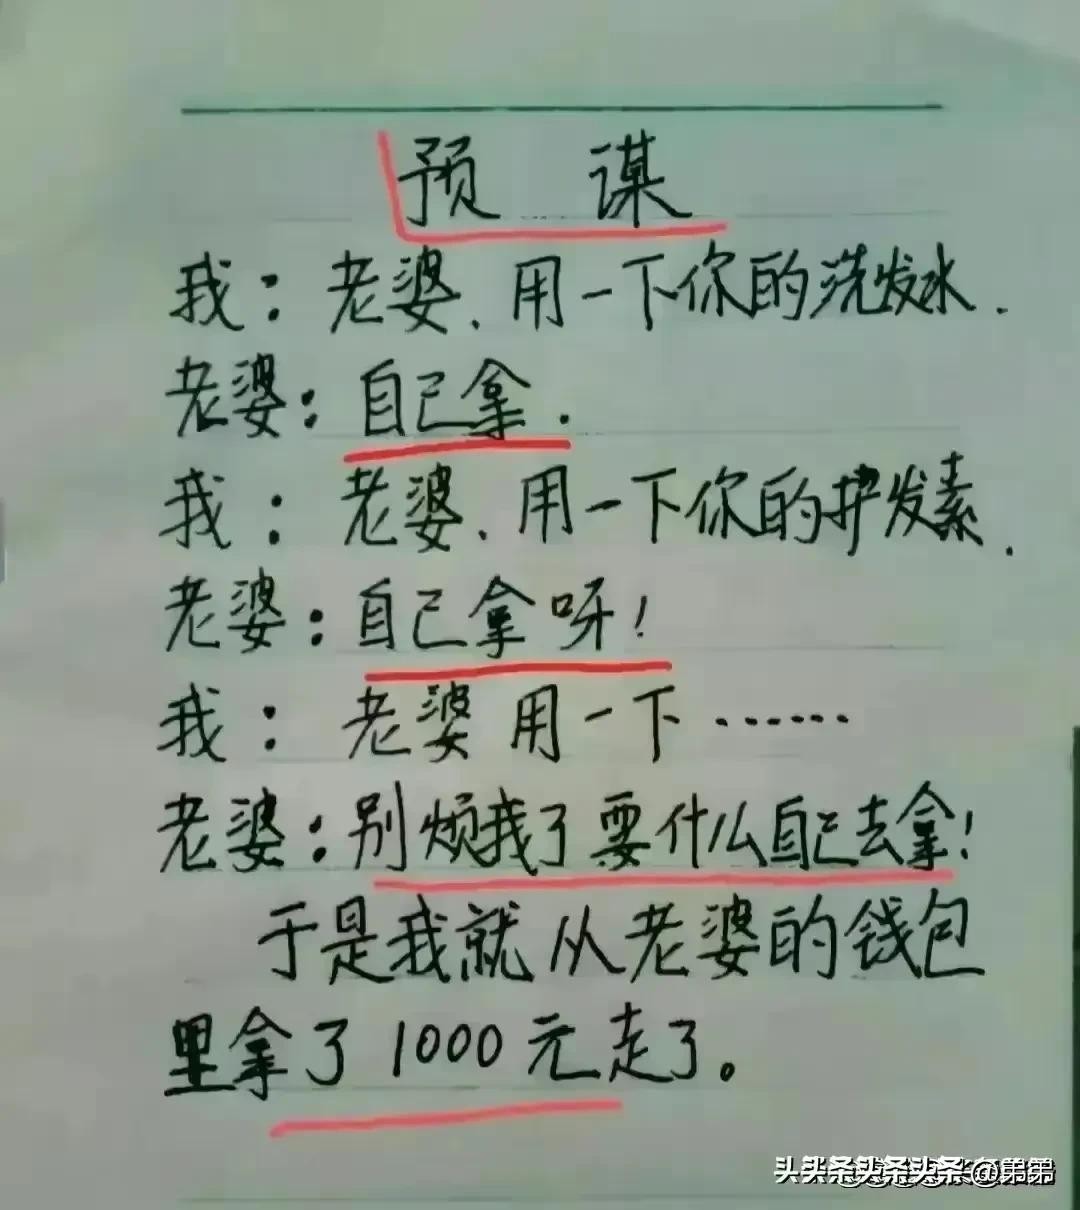 预 谋
我：老婆、用一下你的洗发水.
老婆：自己拿.
我：老婆、用一下你的护发素.
老婆：自己拿呀！
我：老婆 用一下……
老婆：别烦我了要什么自己去拿！
于是我就从老婆的钱包
里拿了1000元走了。
@弟弟